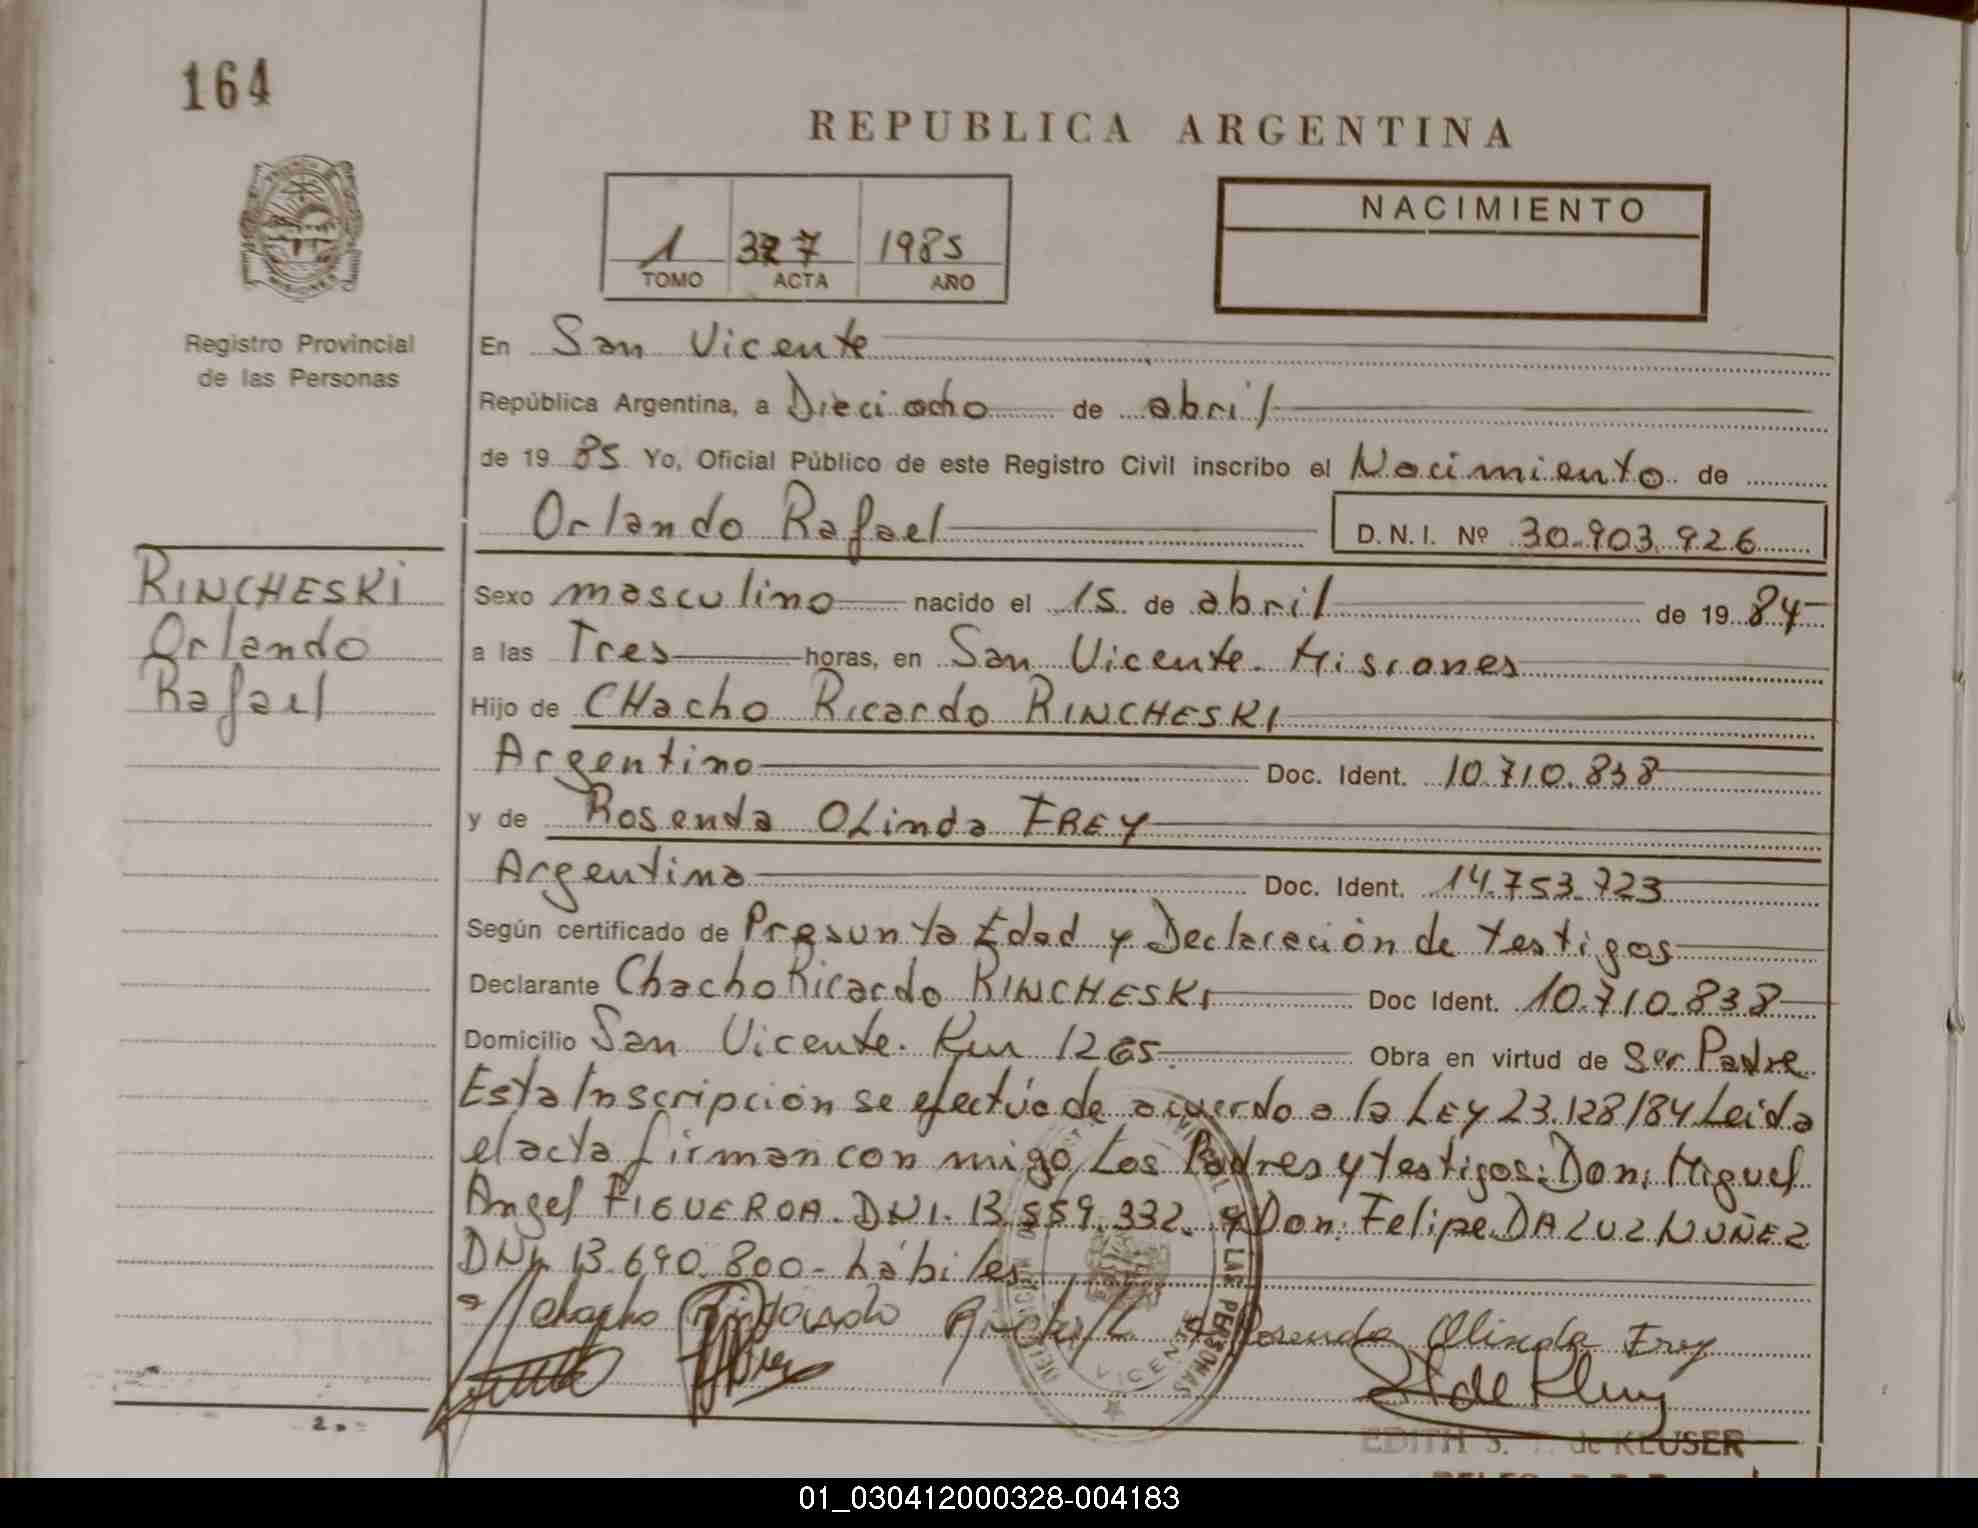 164
REPUBLICA ARGENTINA
NACIMIENTO
1 327 1985
TOMO ACTA AÑO
Registro Provincial
de las Personas
En San Vicente
República Argentina, a Dieciocho de abril
de 19 85 Yo, Oficial Público de este Registro Civil inscribo el Nacimiento de
Orlando Rafael D.N.I. Nº 30.903.926
RINCHESKI
Orlando
Rafael
Sexo masculino nacido el 15 de abril de 19 84
a las Tres horas, en San Vicente. Misiones
Hijo de CHacho Ricardo RINCHESKI
Argentino Doc. Ident. 10.710.838
y de Rosenda OLinda FREY
Argentina Doc. Ident. 14.753.723
Según certificado de Presunta Edad y Declaración de testigos
Declarante Chacho Ricardo RINCHESKI Doc Ident. 10.710.838
Domicilio San Vicente. Km 1265. Obra en virtud de Ser Padre
Esta Inscripción se efectúa de acuerdo a la LEY 23.128/84 Leida
el acta firman con migo Los Padres y testigos: Don: Miguel
Angel FIGUEROA. DNI. 13.559.332. y Don: Felipe DA LUZ NUÑEZ
DNI. 13.690.800 - hábiles
chacho Ricardo Rosenda Olinda Frey
EDITH S. de KLUSER
01_030412000328-004183